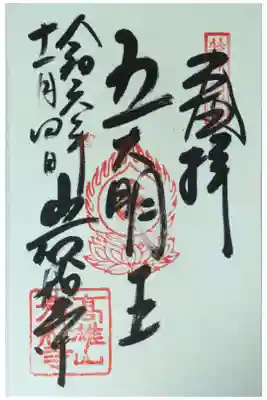 奉拝
五大明王
令和六年
十一月四日
神護寺
高雄山
神護寺